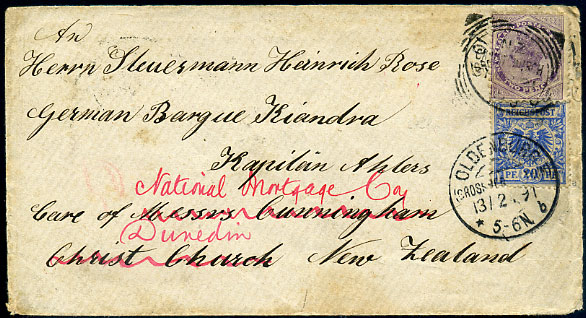 An
Herrn Steuermann Heinrich Rose
German Barque Kiandra
Kapitän Ahlers
National Mortgage Coy
Care of Messrs Cunningham
Dunedin
Christ Church New Zealand
REICHSPOST
PF. 20
OLDENBURG
13/2 91
* 5-6N. b